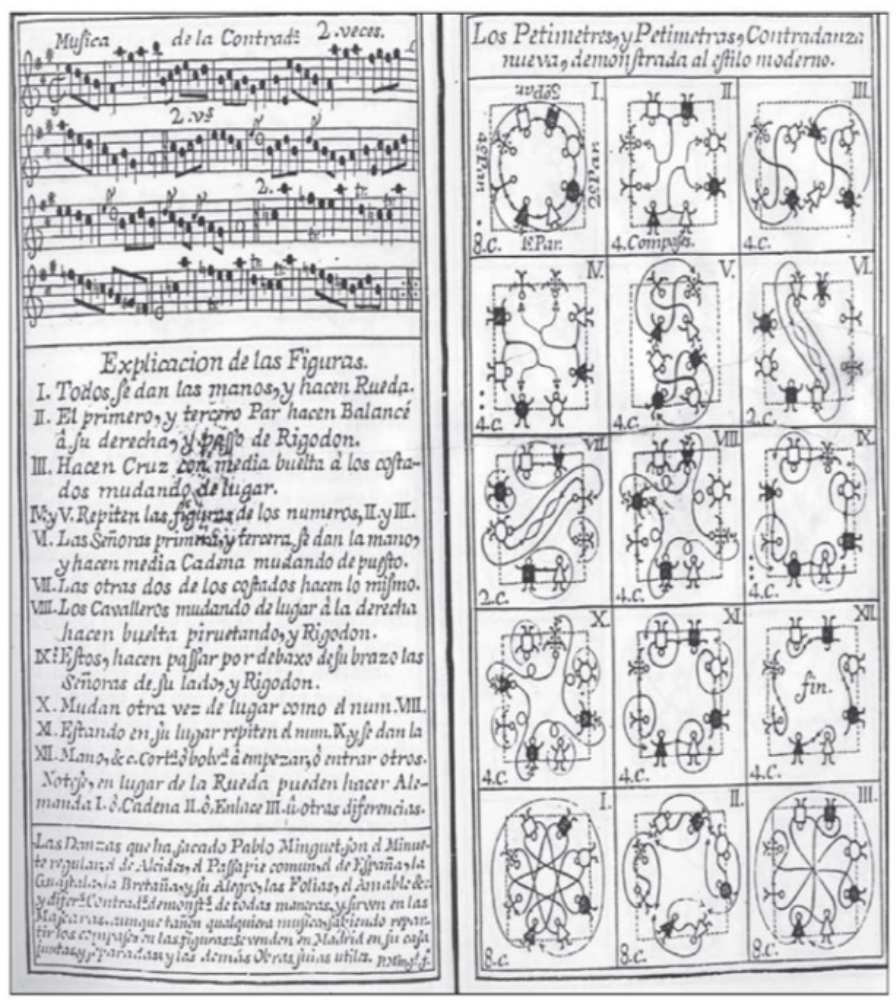 Musica de la Contradª 2. veces.
2. vˢ
2.
Explicacion de las Figuras.
I. Todos se dan las manos, y hacen Rueda.
II. El primero, y tercero Par hacen Balancé
à su derecha, y passo de Rigodon.
III. Hacen Cruz con media buelta à los costa-
dos mudando de lugar.
IV. y V. Repiten las figuras de los numeros, II. y III.
VI. Las Señoras primera, y tercera, se dan la mano,
y hacen media Cadena mudando de puesto.
VII. Las otras dos de los costados hacen lo mismo.
VIII. Los Cavalleros mudando de lugar à la derecha
hacen buelta piruetando, y Rigodon.
IX. Estos, hacen passar por debaxo de su brazo las
Señoras de su lado, y Rigodon.
X. Mudan otra vez de lugar como el num. VIII.
XI. Estando en su lugar repiten el num. IX. y se dan la
XII. Mano, &c. Cortª. ò bolvª. à empezar, ò entrar otros.
Notese, en lugar de la Rueda pueden hacer Ale-
manda I. ò Cadena II. ò Enlace III. ù otras diferencias.
Las Danzas que ha sacado Pablo Minguet, son el Minue-
te regular, el de Alcides, el Passapie comun, el de España, la
la Bretaña, y su Alegro, las Folias, el Amable &c.
y diferˢ. Contradˢ. demonstˢ. de todas maneras, y sirven en las
Mascaras, aunque tañen qualquiera musica, sabiendo repar-
tir los compases en las figuras: se venden en Madrid en su casa
juntas, y separadas, y las demás Obras suias utiles.
Los Petimetres, y Petimetras, Contradanza
nueva, demonstrada al estilo moderno.
I.
3º Par
4º Par
2º Par
1º Par.
8.c.
II.
4. Compases.
III.
4.c.
IV.
4.c.
V.
4.c.
VI.
2.c.
VII.
2.c.
VIII.
4.c.
IX.
4.c.
X.
4.c.
XI.
4.c.
XII.
fin.
4.c.
I.
8.c.
II.
8.c.
III.
8.c.